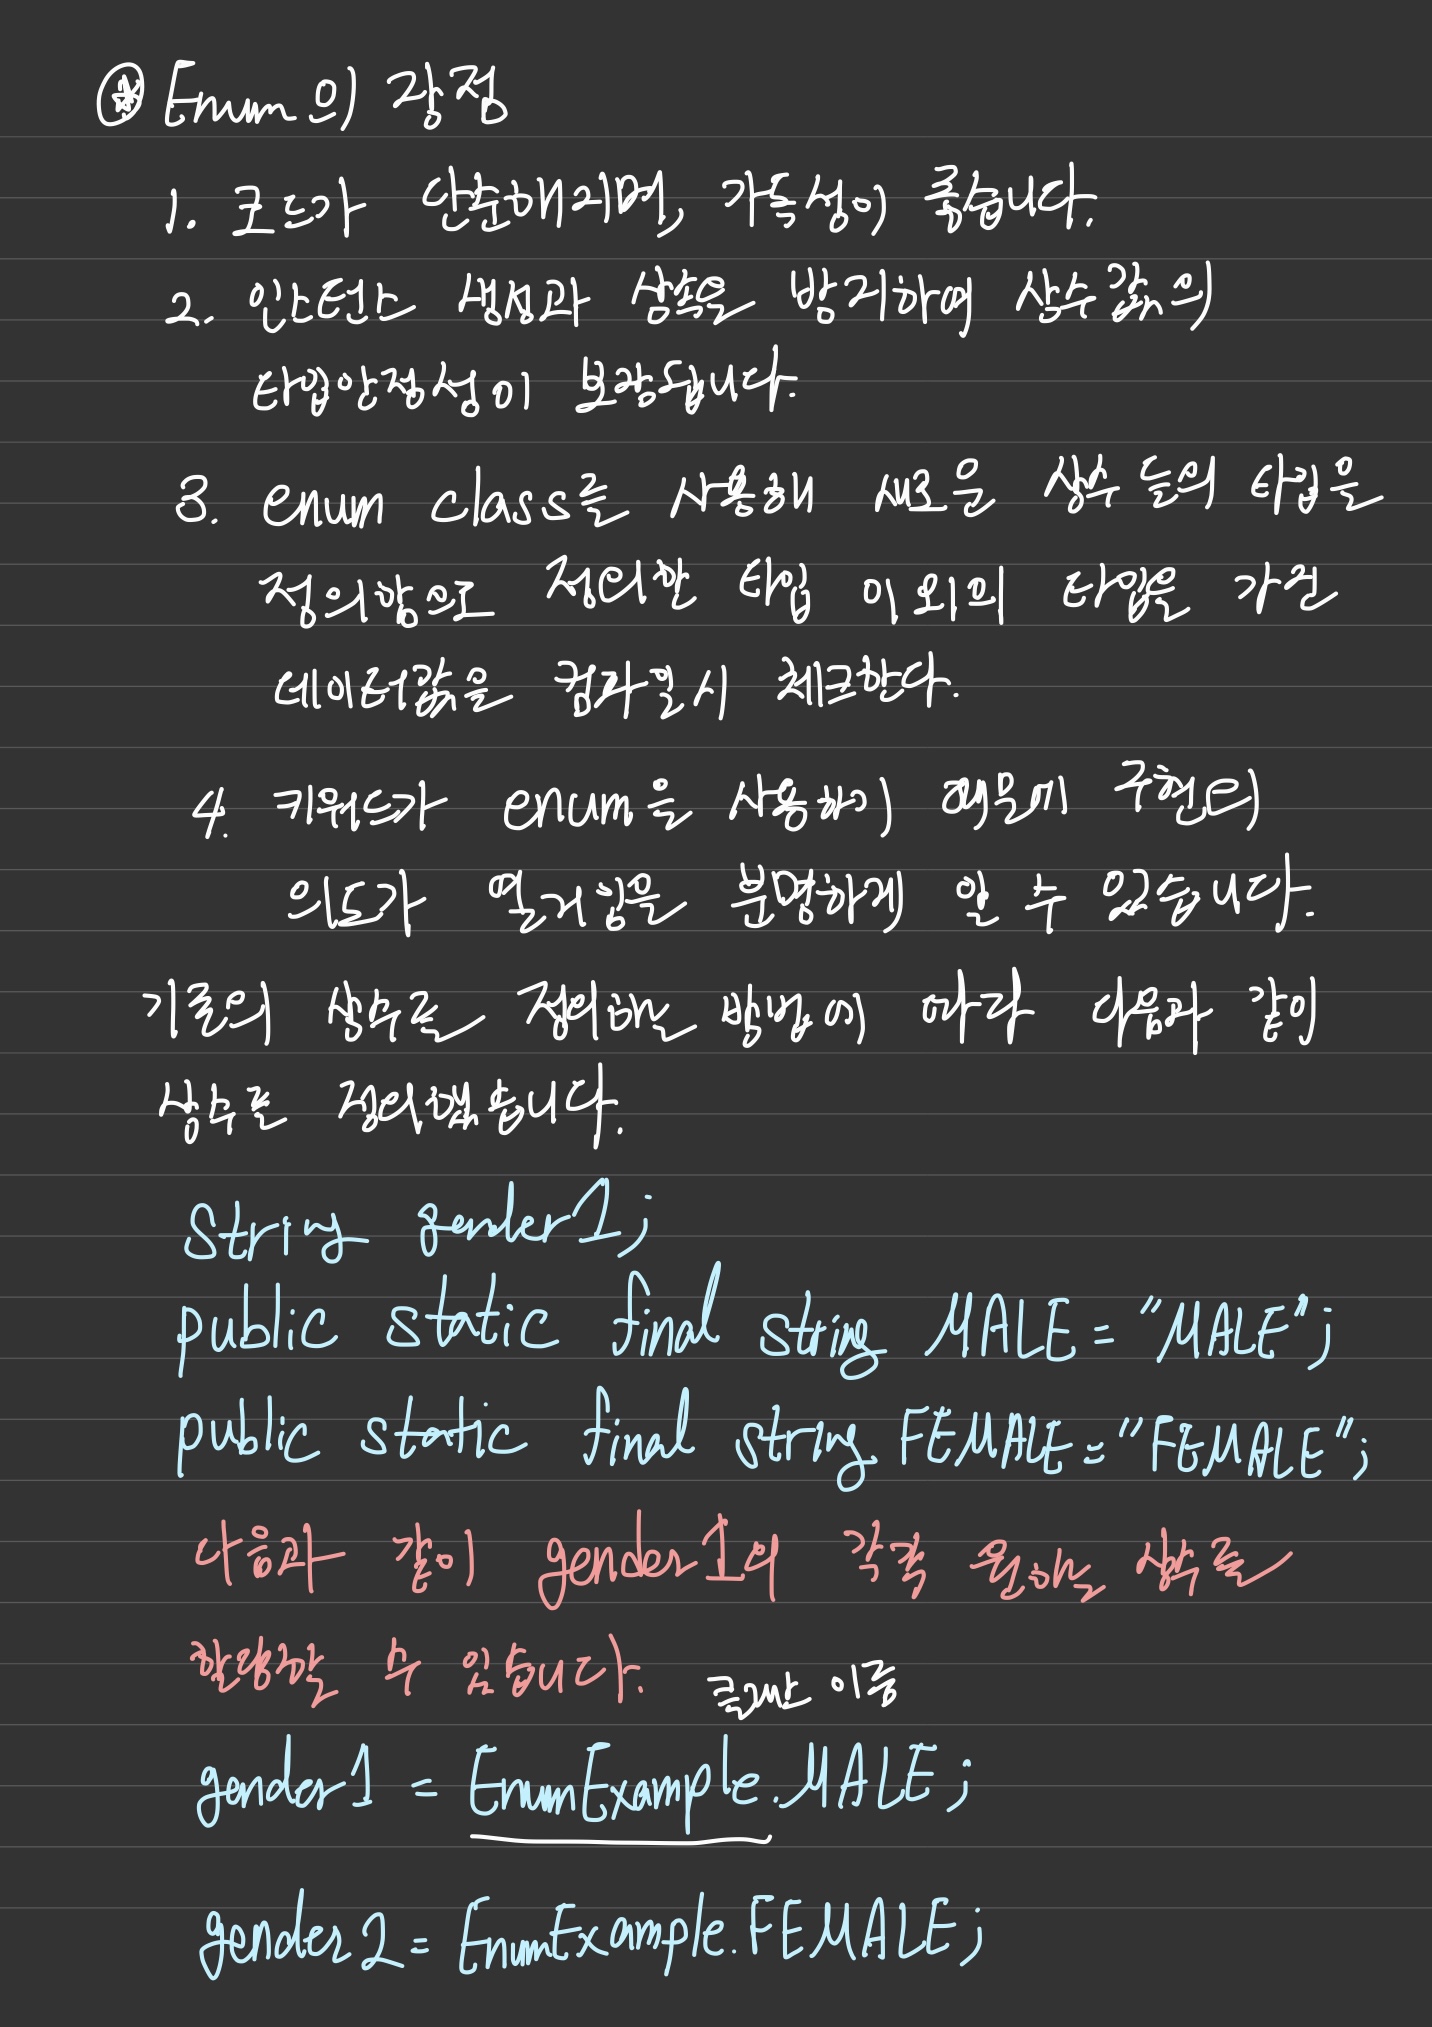 Enum의 장점
1. 코드가 단순해지며, 가독성이 좋습니다.
2. 인스턴스 생성과 상속을 방지하여 상수값의
타입안정성이 보장됩니다.
3. enum class를 사용해 새로운 상수들의 타입을
정의함으로 정의한 타입 이외의 타입을 가진
데이터값을 컴파일시 체크한다.
4. 키워드가 enum을 사용하기 때문에 구현의
의도가 열거임을 분명하게 알 수 있습니다.
기존의 상수를 정의하는 방법에 따라 다음과 같이
상수를 정의했습니다.
String gender1;
public static final string MALE = "MALE";
public static final string FEMALE = "FEMALE";
다음과 같이 gender1의 각각 원하는 상수를
할당할 수 있습니다.
클래스 이름
gender1 = EnumExample.MALE;
gender2 = EnumExample.FEMALE;